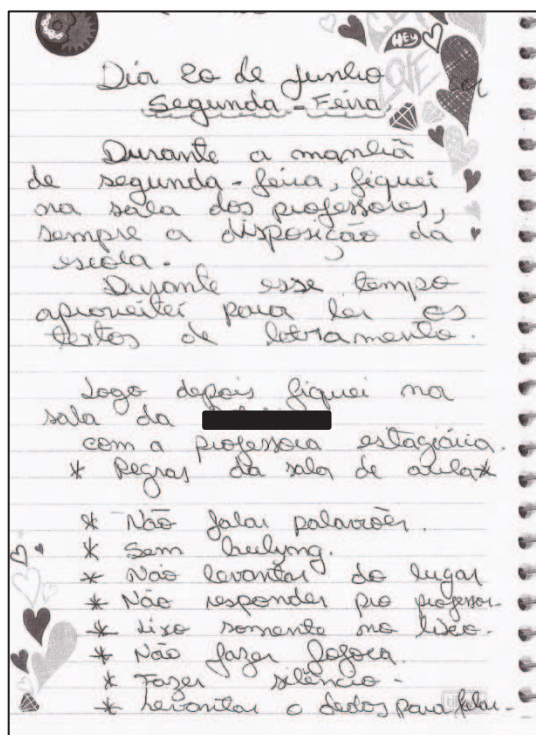 HEY
LOVE
Dia 20 de Junho
Segunda-Feira
Durante a manhã
de segunda-feira, fiquei
na sala dos professores,
sempre a disposição da
escola.
Durante esse tempo
aproveitei para ler os
textos de letramento.
Logo depois fiquei na
sala da
com a professora estagiária.
* Regras da sala de aula*
* Não falar palavrões.
* Sem bulyng.
* Não levantar do lugar
* Não responder pro professor.
* Lixo somente no lixo.
* Não fazer fofoca.
* Fazer silêncio.
* Levantar o dedos para falar.